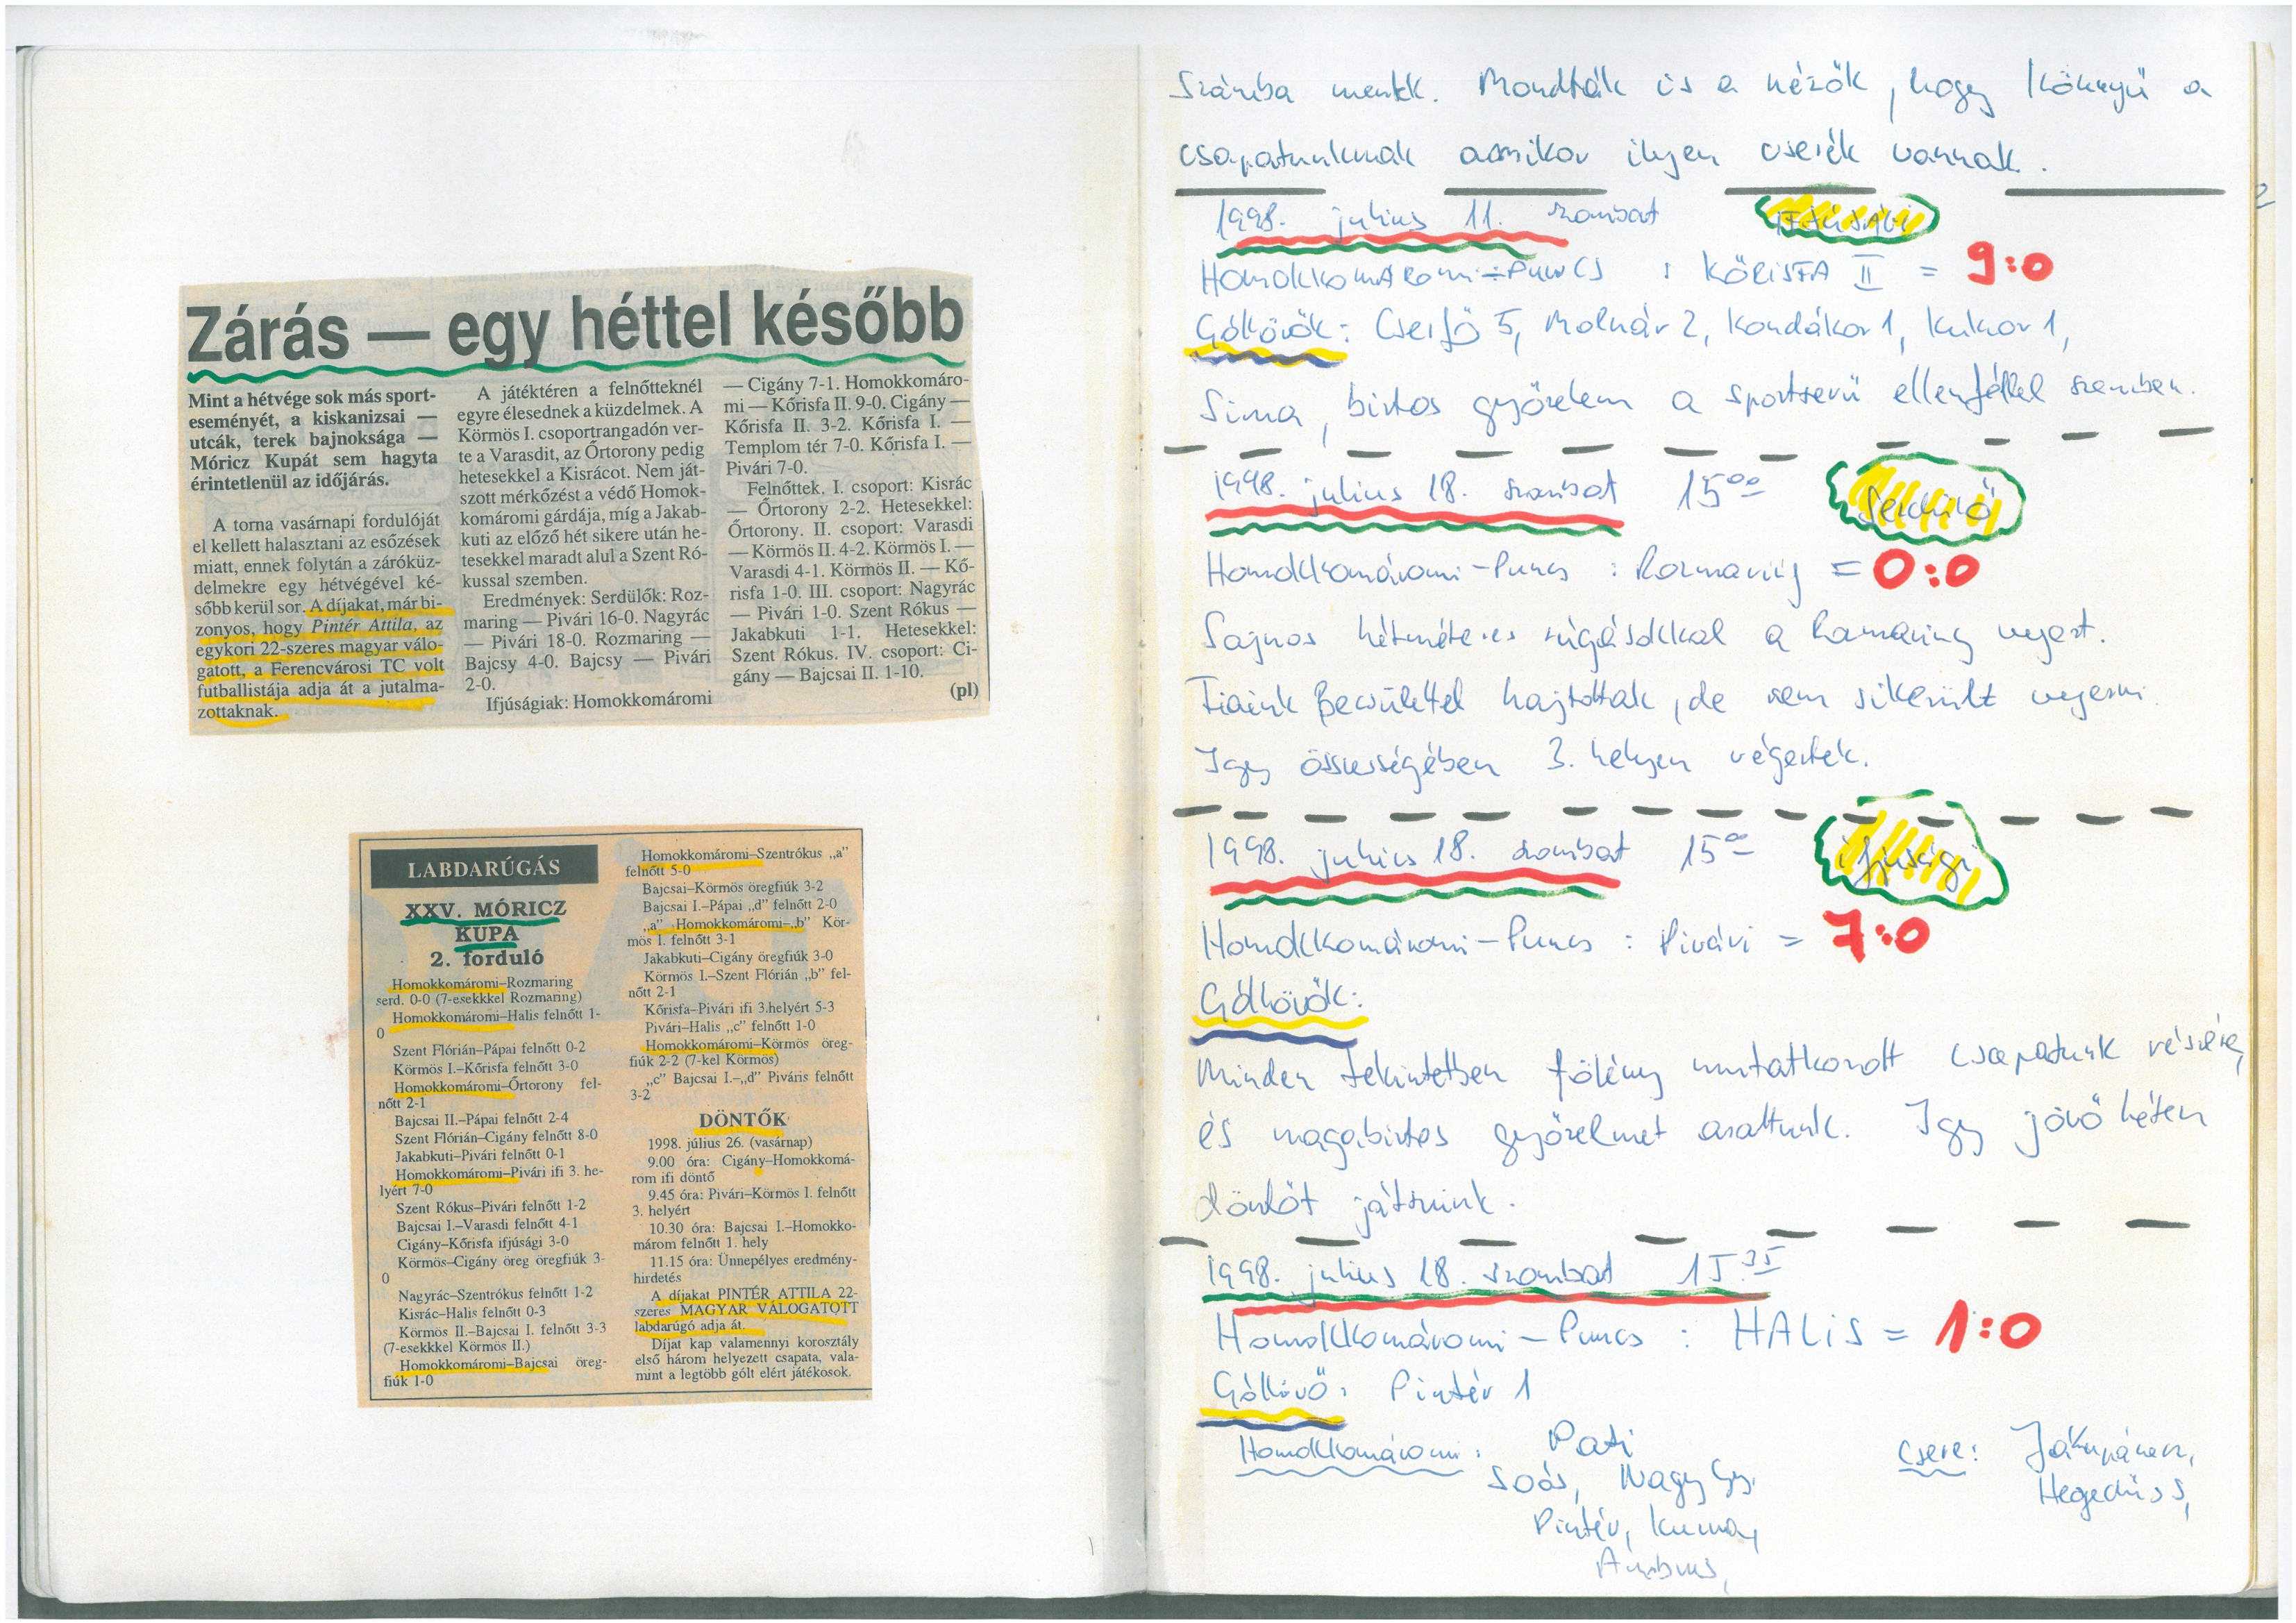 Zárás — egy héttel később
Mint a hétvége sok más sport-
eseményét, a kiskanizsai —
utcák, terek bajnoksága —
Móricz Kupát sem hagyta
érintetlenül az időjárás.
A torna vasárnapi fordulóját
el kellett halasztani az esőzések
miatt, ennek folytán a záróküz-
delmekre egy hétvégével ké-
sőbb kerül sor. A díjakat, már bi-
zonyos, hogy Pintér Attila, az
egykori 22-szeres magyar válo-
gatott, a Ferencvárosi TC volt
futballistája adja át a jutalma-
zottaknak.
A játéktéren a felnőtteknél
egyre élesednek a küzdelmek. A
Körmös I. csoportrangadón ver-
te a Varasdit, az Őrtorony pedig
hetesekkel a Kisrácot. Nem ját-
szott mérkőzést a védő Homok-
komáromi gárdája, míg a Jakab-
kuti az előző hét sikere után he-
tesekkel maradt alul a Szent Ró-
kussal szemben.
Eredmények: Serdülők: Roz-
maring — Pivári 16-0. Nagyrác
— Pivári 18-0. Rozmaring —
Bajcsy 4-0. Bajcsy — Pivári
2-0.
Ifjúságiak: Homokkomáromi
— Cigány 7-1. Homokkomáro-
mi — Kőrisfa II. 9-0. Cigány —
Kőrisfa II. 3-2. Kőrisfa I. —
Templom tér 7-0. Kőrisfa I. —
Pivári 7-0.
Felnőttek. I. csoport: Kisrác
— Őrtorony 2-2. Hetesekkel:
Őrtorony. II. csoport: Varasdi
— Körmös II. 4-2. Körmös I. —
Varasdi 4-1. Körmös II. — Kő-
risfa 1-0. III. csoport: Nagyrác
— Pivári 1-0. Szent Rókus —
Jakabkuti 1-1. Hetesekkel:
Szent Rókus. IV. csoport: Ci-
gány — Bajcsai II. 1-10.
(pl)
LABDARÚGÁS
XXV. MÓRICZ
KUPA
2. forduló
Homokkomáromi–Rozmaring
serd. 0-0 (7-esekkkel Rozmaring)
Homokkomáromi–Halis felnőtt 1-
0
Szent Flórián–Pápai felnőtt 0-2
Körmös I.–Kőrisfa felnőtt 3-0
Homokkomáromi–Őrtorony fel-
nőtt 2-1
Bajcsai II.–Pápai felnőtt 2-4
Szent Flórián–Cigány felnőtt 8-0
Jakabkuti–Pivári felnőtt 0-1
Homokkomáromi–Pivári ifi 3. he-
lyért 7-0
Szent Rókus–Pivári felnőtt 1-2
Bajcsai I.–Varasdi felnőtt 4-1
Cigány–Kőrisfa ifjúsági 3-0
Körmös–Cigány öreg öregfiúk 3-
0
Nagyrác–Szentrókus felnőtt 1-2
Kisrác–Halis felnőtt 0-3
Körmös II.–Bajcsai I. felnőtt 3-3
(7-esekkkel Körmös II.)
Homokkomáromi–Bajcsai öreg-
fiúk 1-0
Homokkomáromi–Szentrókus „a”
felnőtt 5-0
Bajcsai–Körmös öregfiúk 3-2
Bajcsai I.–Pápai „d” felnőtt 2-0
„a” Homokkomáromi–„b” Kör-
mös I. felnőtt 3-1
Jakabkuti–Cigány öregfiúk 3-0
Körmös I.–Szent Flórián „b” fel-
nőtt 2-1
Kőrisfa–Pivári ifi 3.helyért 5-3
Pivári–Halis „c” felnőtt 1-0
Homokkomáromi–Körmös öreg-
fiúk 2-2 (7-kel Körmös)
„c” Bajcsai I.–„d” Piváris felnőtt
3-2
DÖNTŐK
1998. július 26. (vasárnap)
9.00 óra: Cigány–Homokkomá-
rom ifi döntő
9.45 óra: Pivári–Körmös I. felnőtt
3. helyért
10.30 óra: Bajcsai I.–Homokko-
márom felnőtt 1. hely
11.15 óra: Ünnepélyes eredmény-
hirdetés
A díjakat PINTÉR ATTILA 22-
szeres MAGYAR VÁLOGATOTT
labdarúgó adja át.
Díjat kap valamennyi korosztály
első három helyezett csapata, vala-
mint a legtöbb gólt elért játékosok.
Számba mentk. Mondták is a nézők, hogy könnyű a
csapatunknak amikor ilyen cserék vannak.
2
1998. július 11. szombat ifjúsági
Homokkomáromi-Puncs : KŐRISFA II = 9:0
Góllövők: Cserfő 5, Molnár 2, Kondákor 1, Kuknor 1,
Sima, biztos győzelem a sportszerű ellenféllel szemben.
1998. július 18. szombat 15 00 Serdülő
Homokkomáromi-Puncs : Rozmaring = 0:0
Sajnos hétméteres rúgásokkal a Rozmaring nyert.
Fiaink Becsülettel hajtottak, de nem sikerült nyerni.
Igy összességében 3. helyen végeztek.
1998. július 18. szombat 15 00 ifjúsági
Homokkomáromi-Puncs : Pivári = 7:0
Góllövők:
Minden tekintetben fölény mutatkozott csapatunk részére,
és magabiztos győzelmet arattunk. Igy jövő héten
döntőt játszunk.
1998. július 18. szombat 15 35
Homokkomáromi-Puncs : HALIS = 1:0
Góllövő: Pintér 1
Homokkomáromi: Pati csere: Jákupánecz,
Soós, Nagy Gy. Hegedüs S,
Pintér, Kumay,
Ambrus,